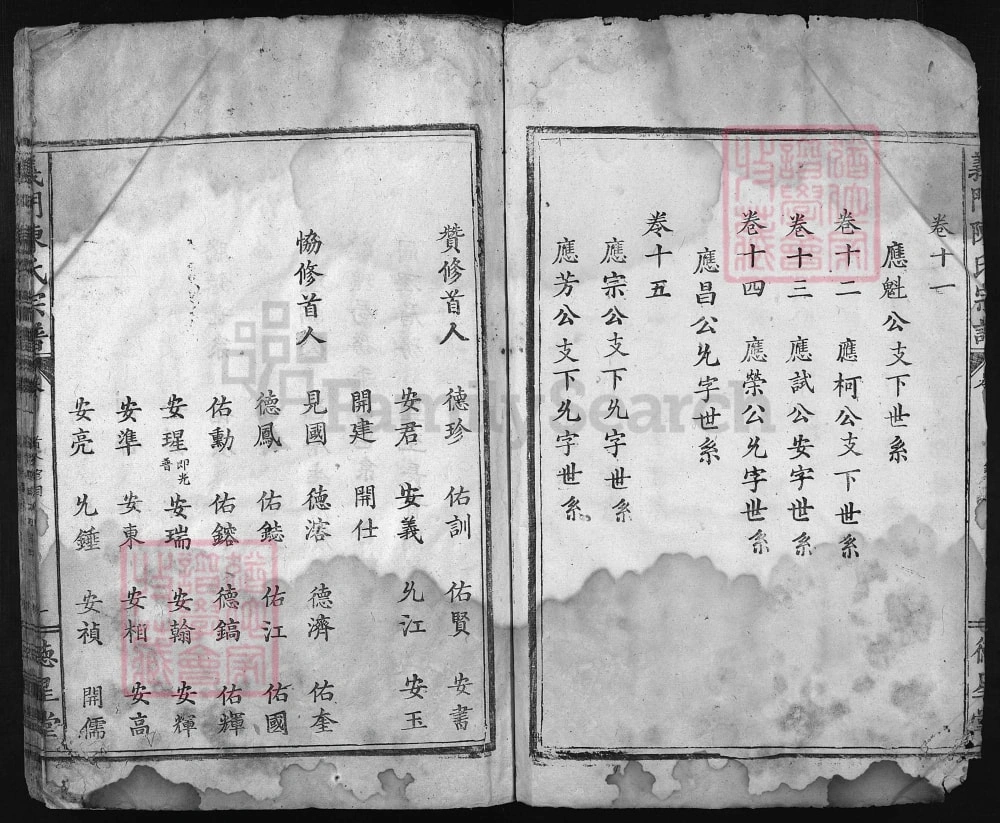 義門陳氏宗譜
卷十一
應魁公支下世系
卷十二 應柯公支下世系
卷十三 應試公安字世系
卷十四 應榮公允字世系
應昌公允字世系
卷十五
應宗公支下允字世系
應芳公支下允字世系
贊修首人 德珍 佑訓 佑賢 安書
安君 安義 允江 安玉
開建 開仕
恊修首人 見國 德溶 德濟 佑奎
德鳳 佑鋕 佑江 佑國
佑勳 佑鎔 德鎬 佑輝
安瑆 即光晋 安瑞 安翰 安輝
安準 安東 安相 安高
安亮 允錘 安禎 開儒
義門陳氏宗譜
德星堂
FamilySearch